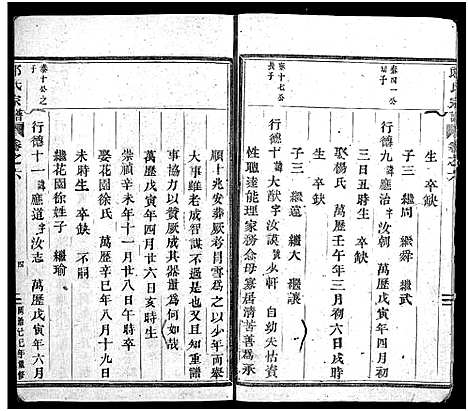 生 卒缺
子三 繼周 繼舜 繼武
泰四一公
長子
行德九諱應治字汝朝 萬歷戊寅年四月初
三日丑時生 卒缺
娶楊氏 萬歷壬午年三月初六日戌時
子三 繼蓮 繼大 繼讓
泰十七公
長子
行德十諱大猷字汝謨號少軒 自幼失怙資
性聰達能理家務念母寡居清苦善爲承
順十兆發葬厥考周雲爲之以少年而舉
大事雖老成智謀不過是也又且知重譜
事協力以贊厥成其器量爲何如哉
萬歷戊寅年四月廿六日亥時生
崇禎辛未年十一月廿八日午時卒
娶花園徐氏 萬歷辛巳年八月十九日
未時生 卒缺 不嗣
繼花園徐姓子 繼瑜
泰十公之
子
行德十一諱應道字汝志 萬歷戊寅年六月
氏宗譜 卷之六
四
同治己巳年重修